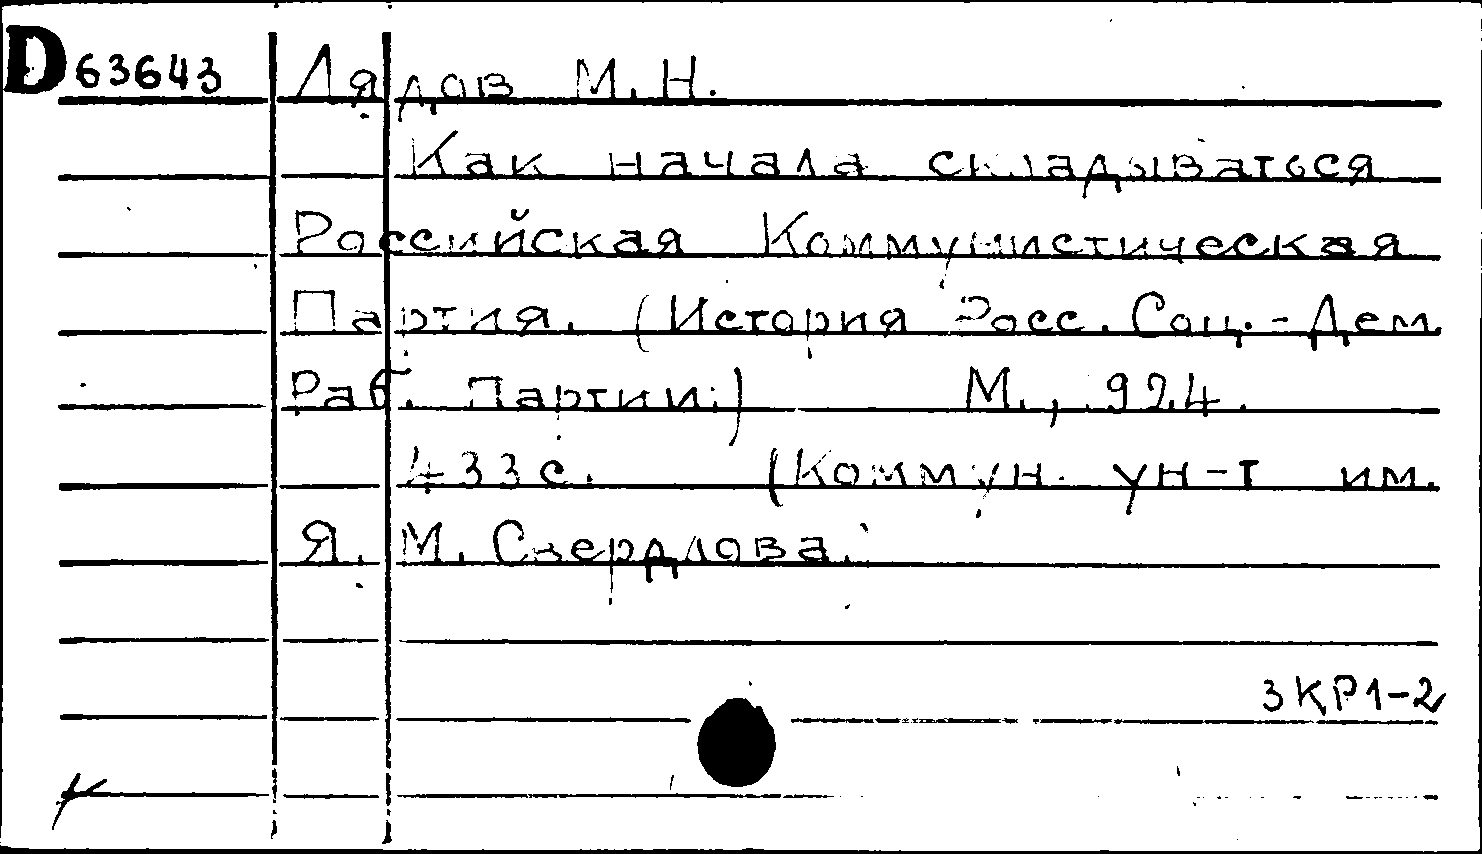 D 63643 Лядов М. Н.
Как начала складываться
Российская Коммунистическая
Партия. (История Росс. Соц.-Дем.
Раб. Партии.) М., 924.
433 с. (Коммун. ун-т им.
Я. М. Свердлова.
3КР1-2